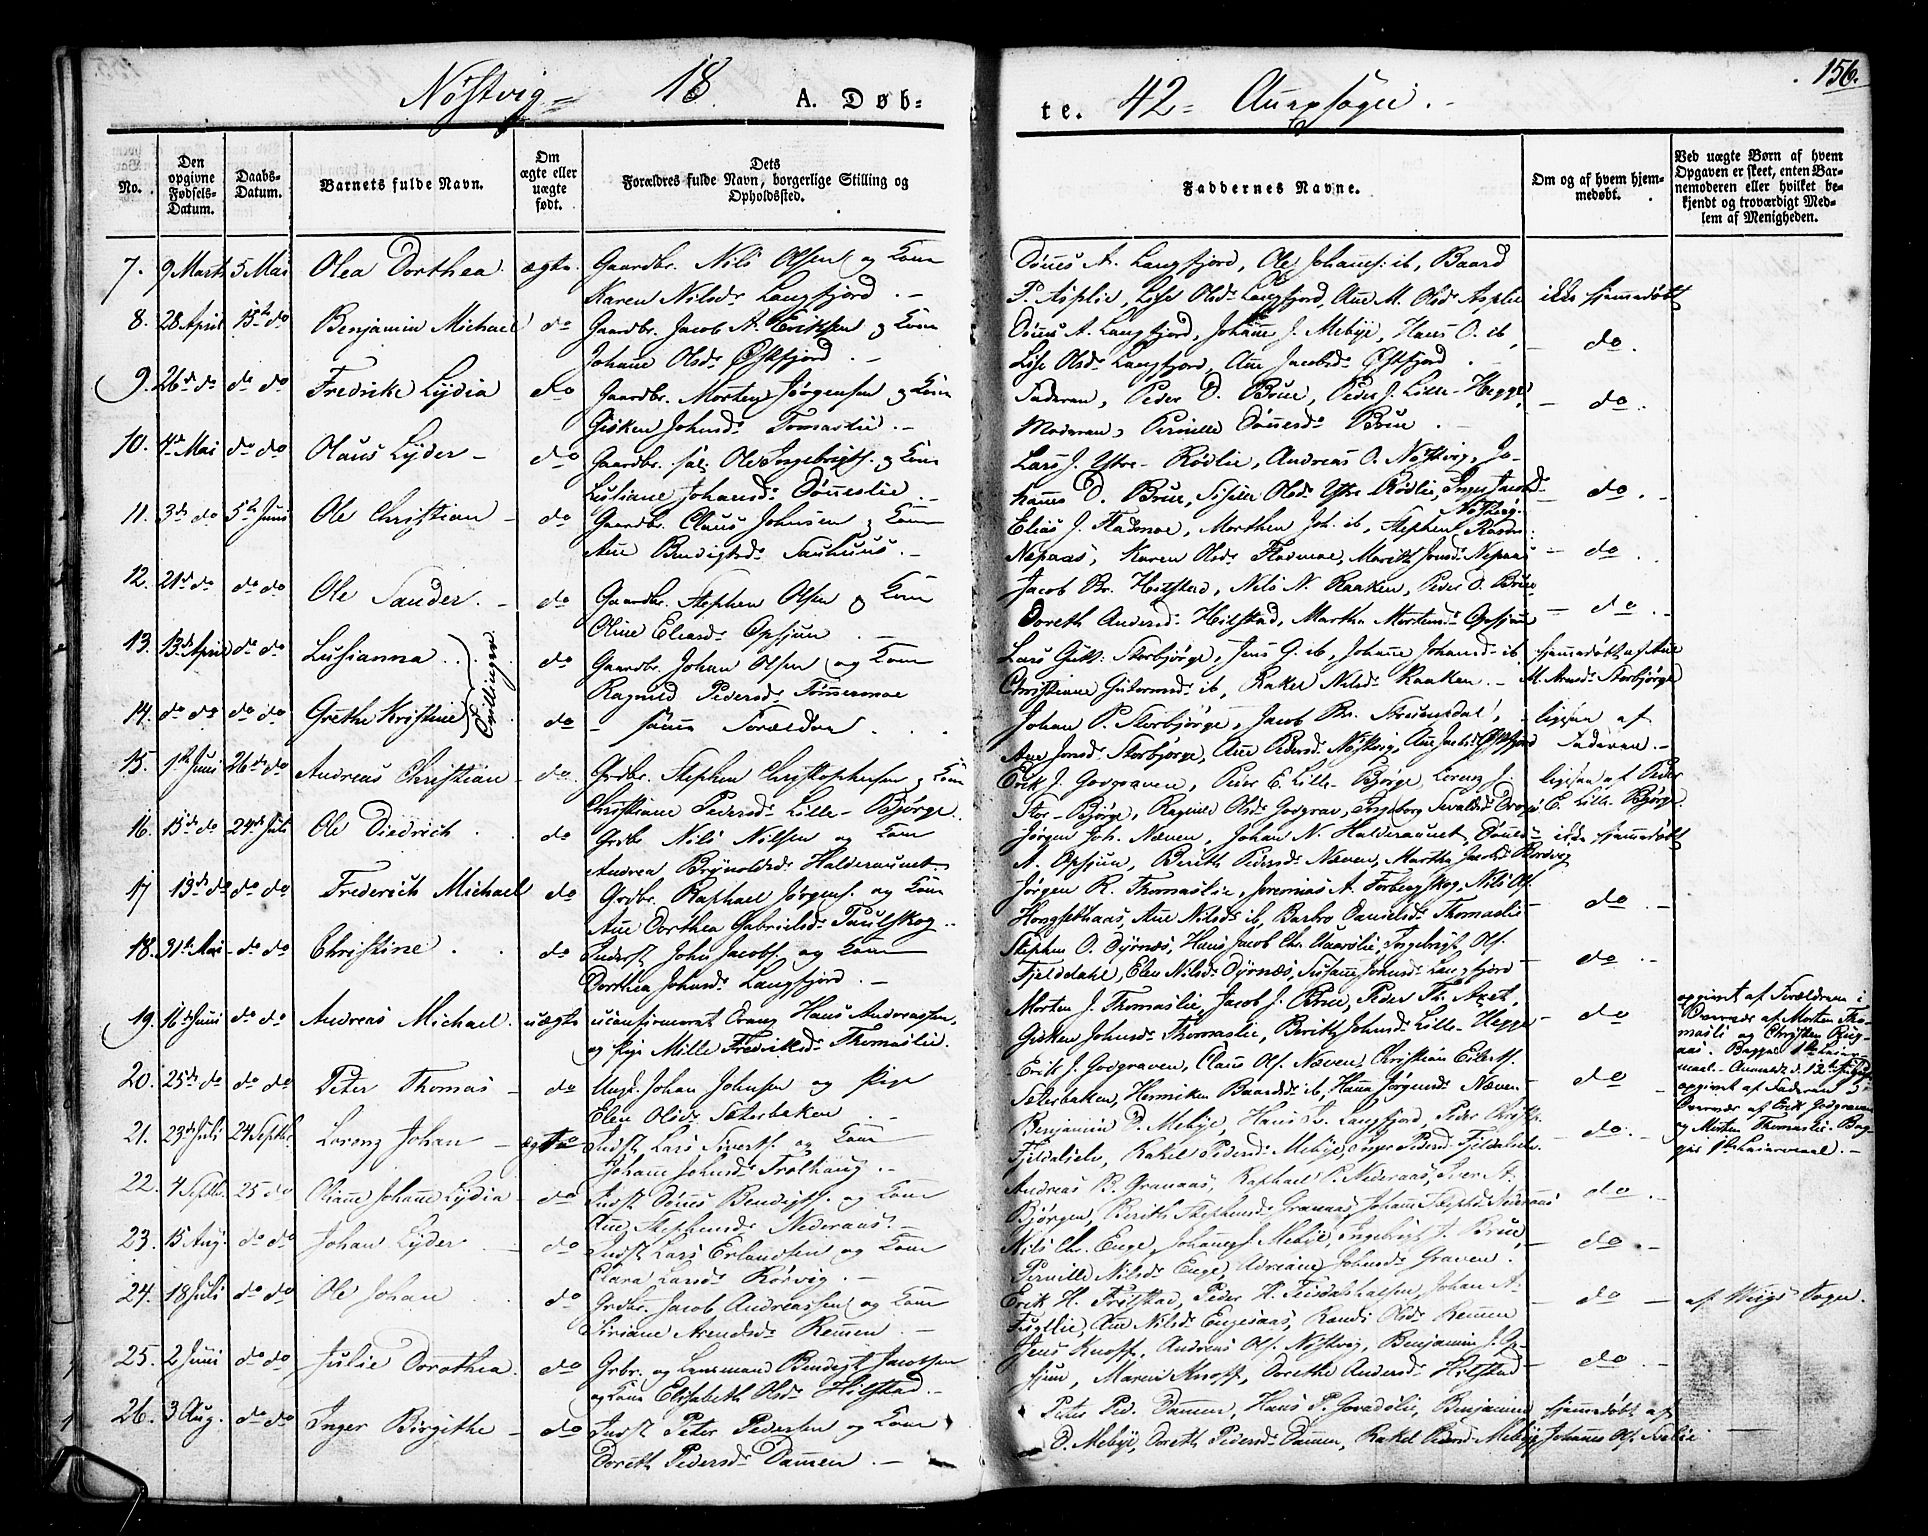 156.
Nöstvig - 18 A. Døb-
te. 42 - Auræsogn. -
No.
Den opgivne Fødsels-Datum.
Daabs-Datum.
Barnets fulde Navn.
Om ægte eller uægte født.
Dets Forældres fulde Navn, borgerlige Stilling og Opholdssted.
Faddernes Navne.
Om og af hvem hjem-medøbt.
Ved uægte Børn af hvem Opgaven er skeet, enten Bar-nemoderen eller hvilket be-kjendt og troværdigt Med-lem af Menigheden.
7. 9 Marts 5 Mai Olea Dorthea. ægte. Gaardbr. Nils Olsen og Kone
Karen Nilsdr Langfjord. -
Dönes A. Langfjord, Ole Johans: ib, Baard
P. Asplie, Lise Olsdr Langfjord, Ane M. Olsdr Asplie ikke hjemmedøbt
8. 28 April 15de do Benjamin Michael do Gaardbr. Jacob A. Eriksen og Kone
Johane Olsdr Østfjord. -
Dönes A. Langfjord, Johanne J. Mebye, Hans O. ib,
Lise Olsdr Langfjord, Ane Jacobsdr Østfjord. - do.
9. 26de do do do Fredrike Lydia do Gaardbr. Morten Jørgensen og Kone
Gisken Johnsdr Tomaslie. -
Faderen, Peder D. Brue, Peder J. Lille-Hegge,
Moderen, Pernille Dönesdr Brue. - do.
10. 4de Mai do do Olaus Lyder - do Gaardbr. sal. Ole Ingebrigts. og Kone
Lusiane Johansdr Dönneslie. -
Lars J. Ytre-Rödlie, Andreas O. Nöstvig, Jo-
hannes D. Brue, Sisille Olsdr Ytre Rödlie, Inger Jacobsdr Nöstvig. - do. -
11. 3de do 5te Juni Ole Christian - do Gaardbr. Claus Johnsen og Kone
Ane Bendigtsdr Sauhuus. -
Elias J. Fladmoe, Morthen Joh. ib, Stephen Rasm.
Nepaas, Karen Olsdr Fladmoe, Marith Jonsdr Nepaas - do.
12. 21de do do do Ole Sander. - do Gaardbr. Stephen Olsen og Kone
Oline Eliasdr Opsjun. -
Jacob Br. Hilstad, Nils N. Raaken, Peder D. Brue
Doreth Andersdr Hilstad, Martha Mortensdr Opsjun - do. -
13. 13de April do do Lusianna. do Gaardbr. Johan Olsen og Kone
Ragnild Pedersdr Tömmermoe
Tvillinger.
Lars Gutt. Storbjörge, Jens G. ib, Johanne Johansd. ib, hjemmedøbt af Ane
Christiane Guttormsdr ib, Rakel Nilsdr Raaken. - M. Arnsdr Storbjörge
14. do do do do Grethe Kristine do - samme Forældre
Johan P. Storbjörge, Jacob Br. Strömsdal, ligesaa af
Ane Jonsdr Storbjörge, Ane Pedersdr Nöstvig, Ane Jacobsdr Østfjord Faderen. -
15. 1te Juni 26de do Andreas Christian - do. Grdbr. Stephen Christophersen og Kone
Christiane Pedersdr Lille-Bjørge.
Erik J. Godgraven, Peder E. Lille-Bjørge, Lorenz J. ligesaa af Peder
Stor-Bjørge, Ragnild Olsdr Godgrav, Ingeborg Sevaldsdr E. Lille Bjørge.
16. 15de do 24de Juli Ole Diedrich. do Grdbr Nils Nilsen og Kone
Andrea Brynoldsdr Halderaunet -
Jörgen Joh. Næven, Johan N. Halderaunet, ikke hjemmedøbt
A. Opsjun, Berith Pedersdr Næven, Martha Jacobsdr
17 13de do do do Frederich Michael do Grdbr. Raphael Jörgens. og Kone
Ane Dorthea Gabrielsdr Faulskog. -
Jörgen R. Thomaslie, Jeremias A. Forbergskog, Nils Ol.
Ane Nilsdr ib, Barbro Danielsdr Thomaslie - do -
18. 31te Mai do do Christine. do Inderst John Jacobs. og Kone
Dorthea Johnsdr Langfjord. -
Stephen O. Dyrnæs, Hans Jacob Chr. Aarölie, Ingebrigt Ol.
Fjelddahl, Elen Nilsdr Dyrnæs, Susanne Johnsdr Langfjord - do. -
19. 16de Juni do do Andreas Michael. uægte uconfirmeret Dreng Hans Andreassen,
og pige Mille Fredriksdr Thomaslie.
Morten J. Thomaslie, Jacob J. Brue, Peder Th. Aset,
Gisken Johnsdr Thomaslie, Berith Johnsdr Lille-Hegge - do
opgivet af Forældrene i
Overvær af Morten Tho-
maslie og Christen Rug-
aas. Begges 1te Leier-
maal. - Anmeldt d. 12te Juli
20. 25de do do do Peter Thomas - do Ungk. Johan Johnsen og Pige
Elen Olsdr Sæterbaken. -
Erik J. Godgraven, Claus Ols. Næven, Christian Eilerts.
Sæterbaken, Henriken Baardsdr ib, Hanna Jörgensdr Næven - do
opgivet af Faderen i
Overvær af Erik Godgraven
og Morten Thomaslie. Beg-
ges 1te Leiermaal. -
21. 23de Juli 24 Septbr. Lorenz Johan - ægte Indst. Lars Siverts. og Kone
Johanne Johnsdr Trolhaug. -
Benjamin D. Mebye, Hans L. Langfjord, Peder Christ.
Fjeldalselv, Rakel Pedersdr Mebye, Inger Pedersd. Fjeldalselv - do. -
22. 4 Septbr. 25 do Oliane Johane Lydia - do Indst Dönes Bendigts. og Kone
Ane Stephensdr Nederaas. -
Andreas B. Granaas, Raphael P. Nederaas, Iver A.
Bjørgen, Berith Stephensdr Granaas, Johanne Stephensdr Nederaas - do. -
23. 15 Aug. do do Johan Lyder - do Indst Lars Erlandsen og Kone
Clara Larsdr Rörvig. -
Nils Chr. Enge, Johannes J. Mebye, Ingebrigt J. Brue,
Pernille Nilsdr Enge, Adriane Johnsdr Graven. - do. -
24. 18 Juli do do Ole Johan do Grdbr. Jacob Andreassen og Kone
Siriane Arendsdr Remmen. -
Erik H. Frölstad, Peder H. Johan A.
Fugllie, Ane Nilsdr Engesaas, Randi Olsdr Remmen - do - af Wiigs Sogn.
25. 2 Juni do do Julie Dorothea. do Grbr. og Lensmand Bendigt Jacobsen
og Kone Elisabeth Olsdr Hilstad. -
Jens Knoff, Andreas Ols. Nöstvig, Benjamin J. Op-
sjun, Maren Knoff, Dorethe Andersdr Hilstad - do. -
26. 3 Aug. do do Inger Birgithe - do Indst Peter Pedersen og Kone
Doreth Pedersdr Dammen. -
Peter Ped. Dammen, Hans P. Benjamin hjemmedøbt af
D. Mebye, Doreth Pedersdr Dammen, Rakel Pedersdr Mebye, Johannes Ols.